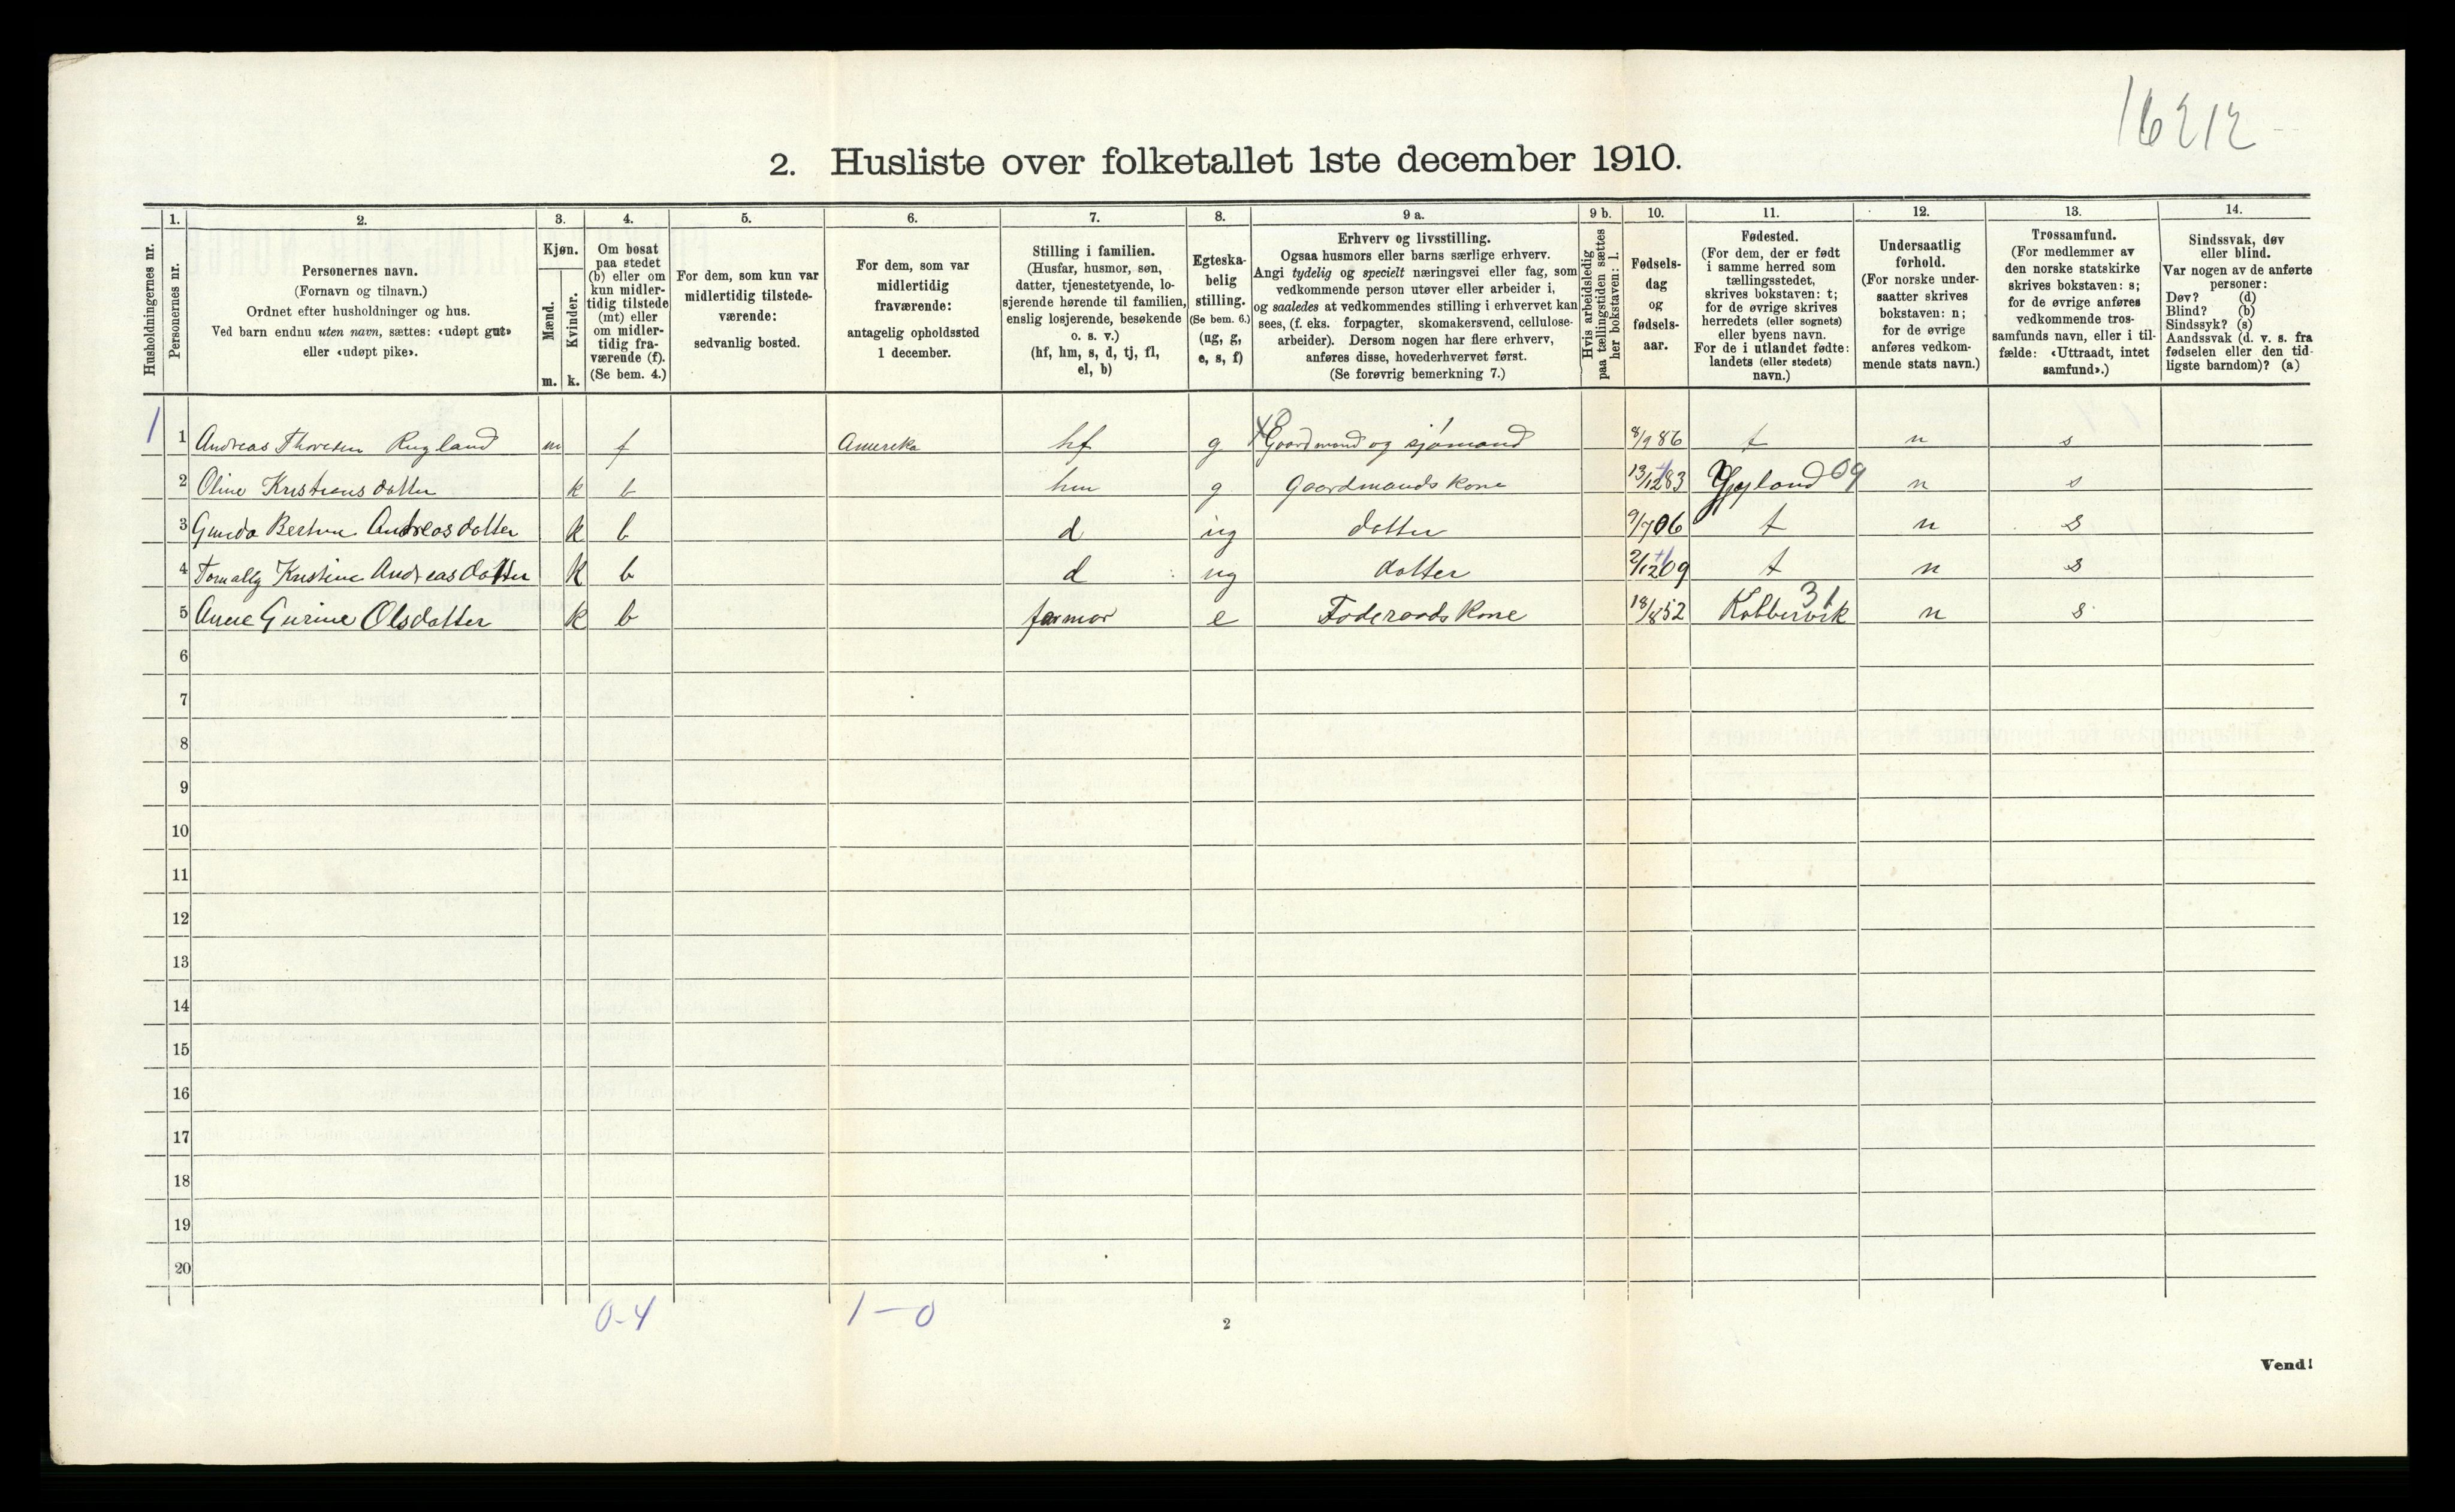 16212
2. Husliste over folketallet 1ste december 1910.
Husholdningernes nr.
1.
Personernes nr.
2.
Personernes navn.
(Fornavn og tilnavn.)
Ordnet efter husholdninger og hus.
Ved barn endnu uten navn, sættes: «udøpt gut»
eller «udøpt pike».
3.
Kjøn.
Mænd.
m.
Kvinder.
k.
4.
Om bosat
paa stedet
(b) eller om
kun midler-
tidig tilstede
(mt) eller
om midler-
tidig fra-
værende (f).
(Se bem. 4.)
5.
For dem, som kun var
midlertidig tilstede-
værende:
sedvanlig bosted.
6.
For dem, som var
midlertidig
fraværende:
antagelig opholdssted
1 december.
7.
Stilling i familien.
(Husfar, husmor, søn,
datter, tjenestetyende, lo-
sjerende hørende til familien,
enslig losjerende, besøkende
o. s. v.)
(hf, hm, s, d, tj, fl,
el, b)
8.
Egteska-
belig
stilling.
(Se bem. 6.)
(ug, g,
e, s, f)
9 a.
Erhverv og livsstilling.
Ogsaa husmors eller barns særlige erhverv.
Angi tydelig og specielt næringsvei eller fag, som
vedkommende person utøver eller arbeider i,
og saaledes at vedkommendes stilling i erhvervet kan
sees, (f. eks. forpagter, skomakersvend, cellulose-
arbeider). Dersom nogen har flere erhverv,
anføres disse, hovederhvervet først.
(Se forøvrig bemerkning 7.)
9 b.
Hvis arbeidsledig
paa tællingstiden sættes
her bokstaven: l.
10.
Fødsels-
dag
og
fødsels-
aar.
11.
Fødested.
(For dem, der er født
i samme herred som
tællingsstedet,
skrives bokstaven: t;
for de øvrige skrives
herredets (eller sognets)
eller byens navn.
For de i utlandet fødte:
landets (eller stedets)
navn.)
12.
Undersaatlig
forhold.
(For norske under-
saatter skrives
bokstaven: n;
for de øvrige
anføres vedkom-
mende stats navn.)
13.
Trossamfund.
(For medlemmer av
den norske statskirke
skrives bokstaven: s;
for de øvrige anføres
vedkommende tros-
samfunds navn, eller i til-
fælde: «Uttraadt, intet
samfund».)
14.
Sindssvak, døv
eller blind.
Var nogen av de anførte
personer:
Døv? (d)
Blind? (b)
Sindssyk? (s)
Aandssvak (d. v. s. fra
fødselen eller den tid-
ligste barndom)? (a)
1 1 Andreas Thoresen Rugland m f Amereka hf g Gaardmand og sjømand 8/9 86 t n s
2 Oline Kristiansdatter k b hm g Gaardmands kone 13/12 83 Gyland 09 n s
3 Gunda Andreasdatter k b d ug datter 9/7 06 t n s
4 Kristine Andreasdatter k b d ug datter 2/12 09 t n s
5 Anne Gurine Olsdatter k b farmor e Føderaads Kone 18/8 52 31 n s
6
7
8
9
10
11
12
13
14
15
16
17
18
19
20
0-4 1-0
2
Vend!